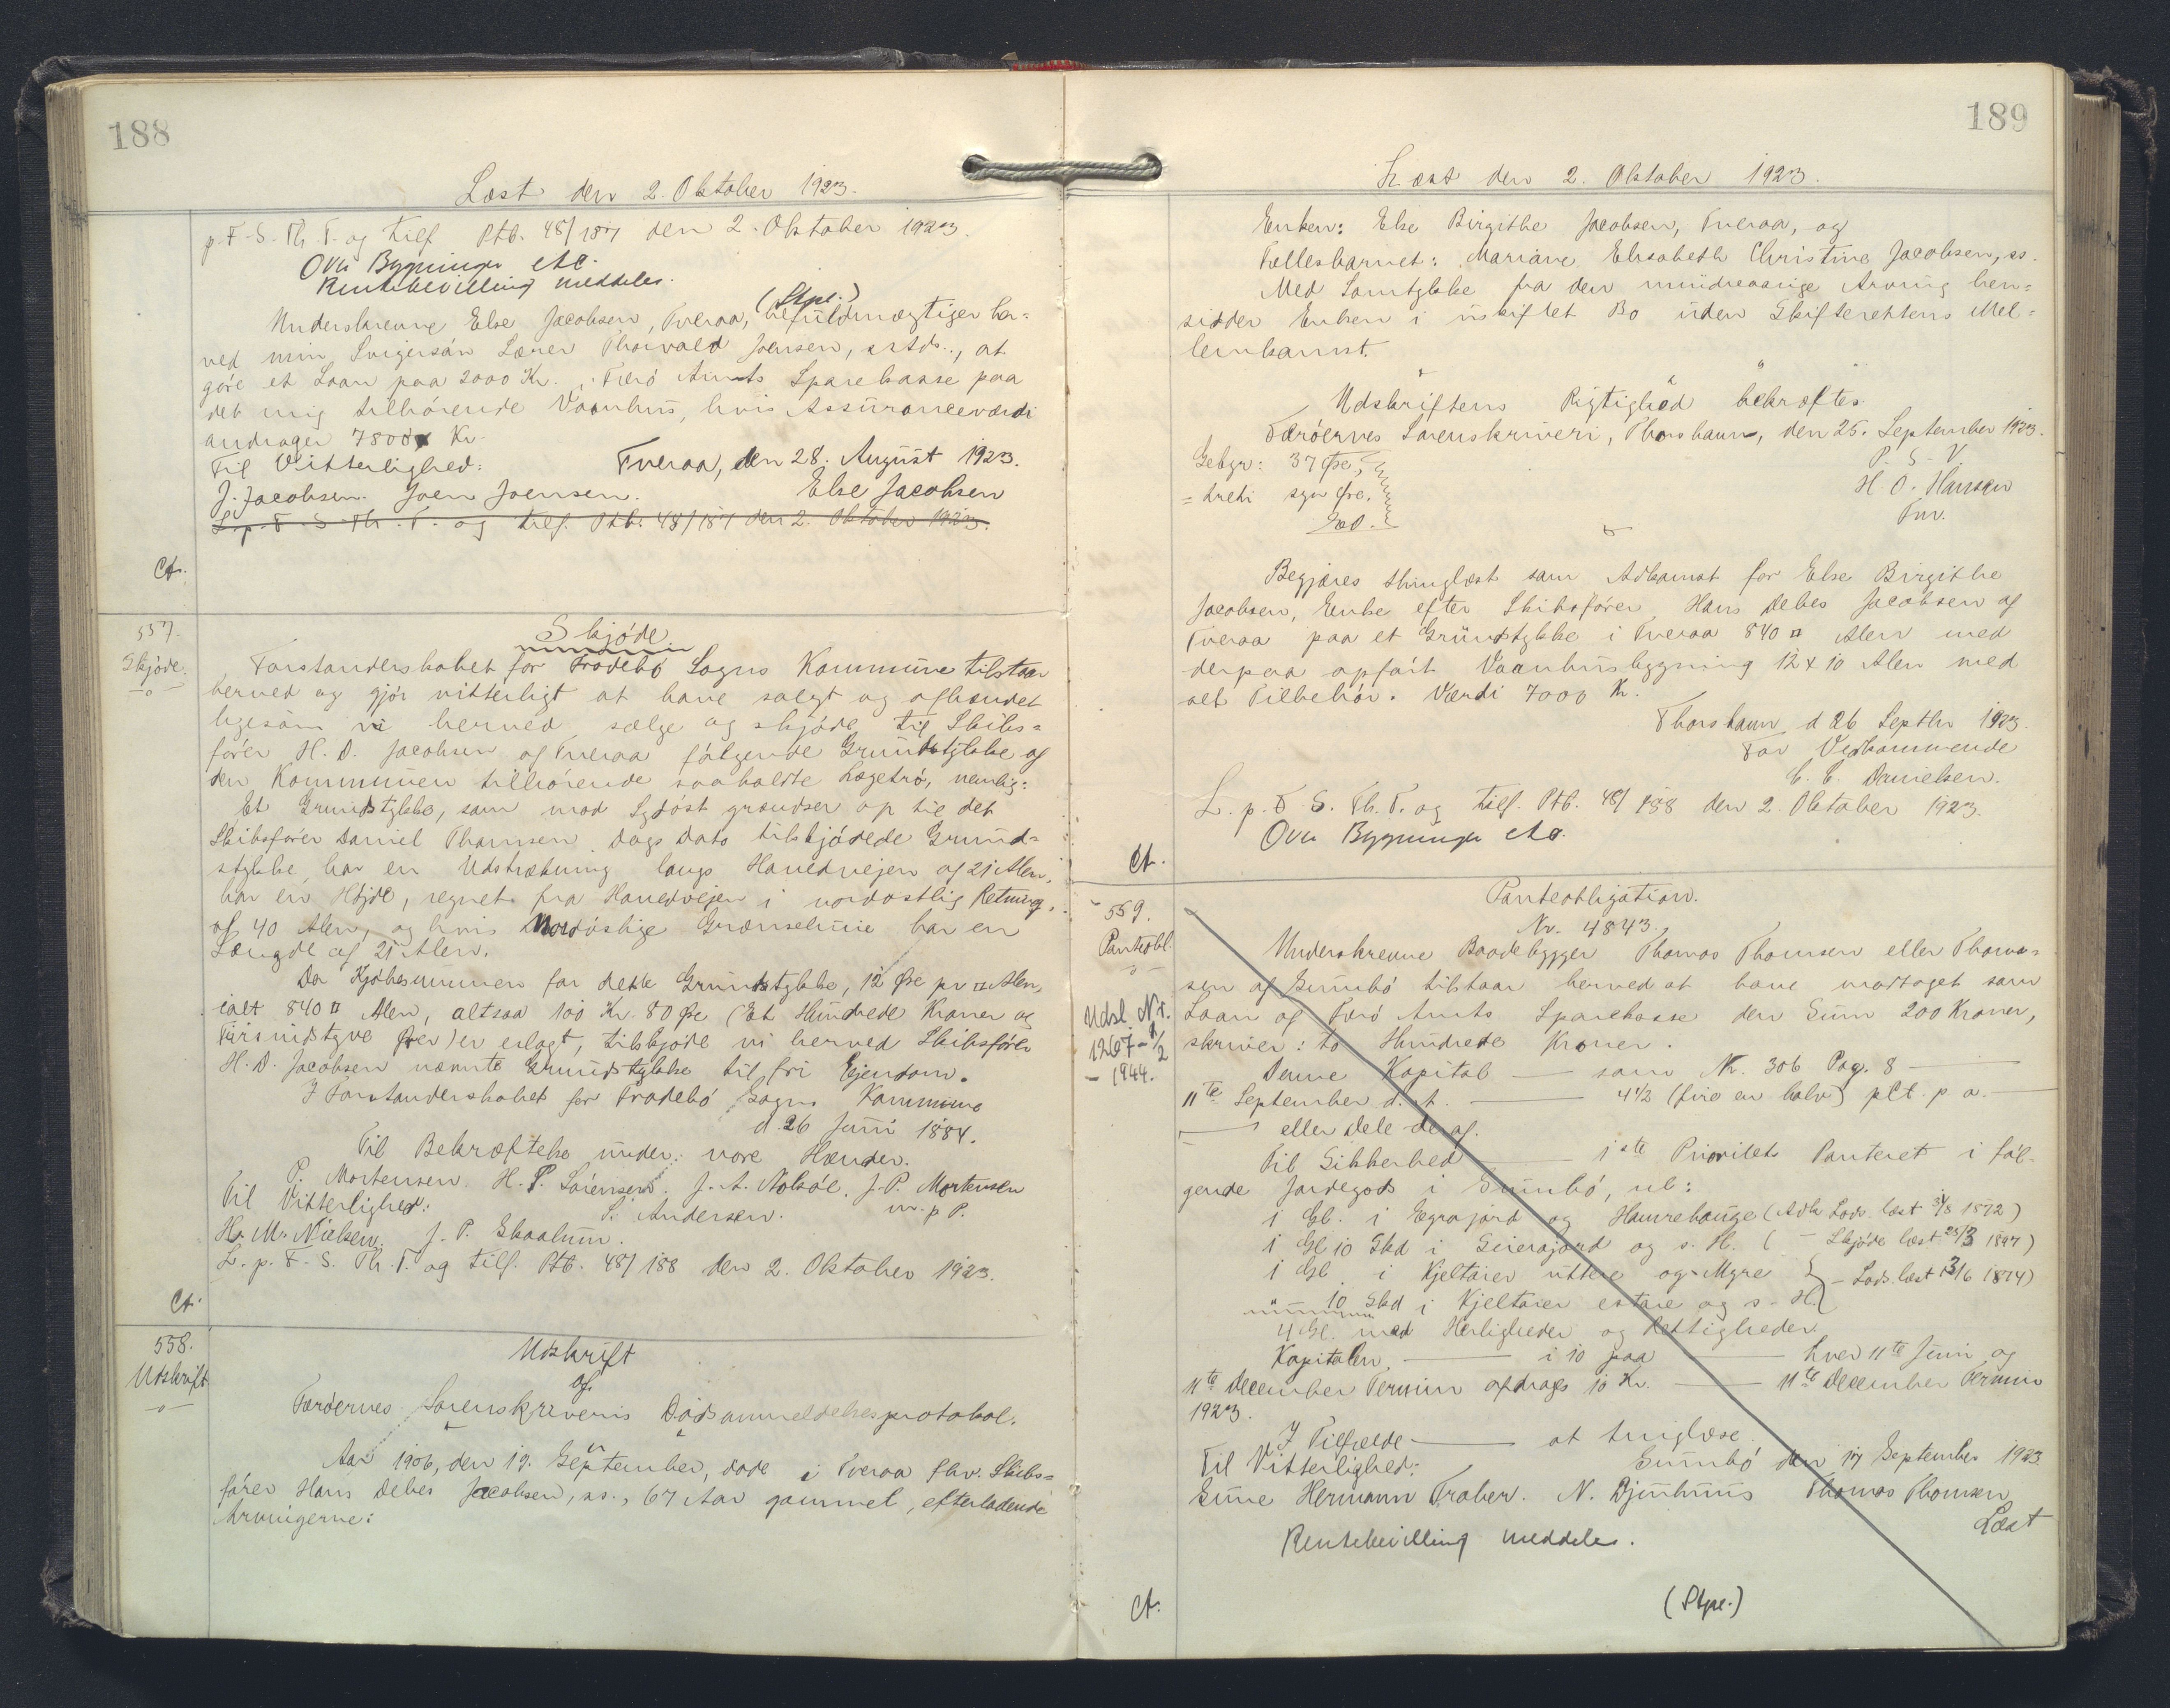 188
Læst den 2. Oktober 1923.
p. F. S. Th. T. og tilf. Ptb. 48/187 den 2. Oktober 1923.
Ovr Bygninger etc.
Rentebevilling meddeles.
(Stpl.)
Underskrevne Else Jacobsen, Tveraa, befuldmægtiger her=
ved min Svigersón Lærer Thorvald Joensen, sstds., at
góre et Laan paa 2000 Kr. i Færó Amts Sparekasse paa
det mig tilhórende Vaanhus, hvis Assuranceværdi
andrager 7800 Kr.
Til Vitterlighed: Tveraa, den 28. August 1923.
J. Jacobsen. Joen Joensen. Else Jacobsen
L. p. F. S. Th. T. og tilf. Ptb. 48/187 den 2. Oktober 1923.
Ct.
557.
Skjøde.
Skjóde.
Forstanderskabet for Frodebó Sogns Kommune tilstaar
herved og gjór vitterligt at have solgt og afhændet
ligesom vi herved sælge og skjóde til Skibs=
fórer H. D. Jacobsen af Tveraa fólgende Grundstykke af
den Kommunen tilhórende saakaldte Lægetró, nemlig:
Et Grundstykke, som mod Sydóst grændser op til det
Skibsfórer Daniel Thomsen Dags Dato tilskjódede Grund=
stykke, har en Udstrækning langs Hovedvejen af 21 Alen,
har en Hójde, regnet fra Hovedvejen i nordostlig Retning,
af 40 Alen, og hvis Nordóstlige Grænselinie har en
Længde af 21 Alen.
Da Kjóbesummen for dette Grundstykke, 12 Øre pr □ Alen,
ialt 840 □ Alen, altsaa 100 Kr. 80 Øre (Et Hundrede Kroner og
Firsindstyve Øre) er erlagt, tilskjóde vi herved Skibsfórer
H. D. Jacobsen nævnte Grundstykke til fri Ejendom.
I Forstanderskabet for Frodebó Sogns Kommune
d. 26 Juni 1884.
Til Bekræftelse under vore Hænder.
P. Mortensen. H. P. Sórensen. J. A. Nolsóe. J. P. Mortensen
Til Vitterlighed: S. Andersen. m. p P.
H. M. Nielsen. J. P. Skaalum.
L. p. F. S. Th. T. og tilf. Ptb. 48/188 den 2. Oktober 1923.
Ct.
558.
Udskrift
Udskrift
af
Færóernes Sorenskriveris Dódsanmeldelsesprotokol.
Aar 1906, den 19. September, dóde i Tveraa fhv. Skibs=
fórer Hans Debes Jacobsen, ss., 67 Aar gammel, efterladende
Arvingerne:
189
Læst den 2. Oktober 1923.
Enken: Else Birgithe Jacobsen, Tveraa, og
Fællesbarnet: Mariane Elisabeth Christine Jacobsen, ss.
Med Samtykke fra den mindreaarige Arving hen=
sidder Enken i uskiftet Bo uden Skifterettens Mel=
lemkomst.
Udskriftens Rigtighed bekræftes
Færóernes Sorenskriveri, Thorshavn, den 25. September 1923.
Gebyr: 37 Øre, P. S. V.
= treti syv Øre. H. O. Hansen
HoO. Fm.
Begjæres thinglæst som Adkomst for Else Birgithe
Jacobsen, Enke efter Skibsfórer Hans Debes Jacobsen af
Tveraa paa et Grundstykke i Tveraa 840 □ Alen med
derpaa opfórt Vaanhusbygning 12 x 10 Alen med
alt Tilbehór. Værdi 7000 Kr.
Thorshavn d 26 Septbr 1923.
For Vedkommende
C. C. Danielsen.
L. p. F. S. Th. T. og tilf. Ptb. 48/188 den 2. Oktober 1923.
Ovr Bygninger etc.
Ct.
559.
Panteobl.
Udsl. Nr.
1267-1/2
- 1944.
Panteobligation.
Nr. 4843.
Underskrevne Baadebygger Thomas Thomsen eller Thoma=
sen af Sumbó tilstaar herved at have modtaget som
Laan af Færó Amts Sparekasse den Sum 200 Kroner,
skriver: to Hundrede Kroner.
Denne Kapital — som Nr. 306 Pag. 8 —
11te September d. A. — 4 1/2 (fire en halv) pCt. p. a. —
— eller Dele deraf.
Til Sikkerhed — 1ste Prioritets Panteret i fól-
gende Jordegods i Sumbó, nl:
1 Gl. i Egrajord og Hamrehauge (Adk Lods. læst 31/8 1872)
1 Gl 10 Skd i Geierajord og s. H. ( - Skjóde læst 25/3 1897)
1 Gl. i Kjeltarer uttere og Myre } - Lods. læst 13/6 1874)
" 10 Skd i Kjeltarer estare og s. H.
4 Gl. med Herligheder og Rettigheder.
Kapitalen — i 10 paa — hver 11te Juni og
11te December Termin afdrages 10 Kr. — 11te December Termin
1923.
I Tilfælde — at tinglæse.
Til Vitterlighed: Sumbó den 17 September 1923
Hermann Traber. N. Djunhuus Thomas Thomsen
Læst
Rentebevilling meddeles.
(Stpl.)
Ct.